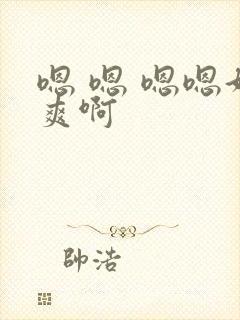 嗯 嗯 嗯嗯好
爽啊
帥浩